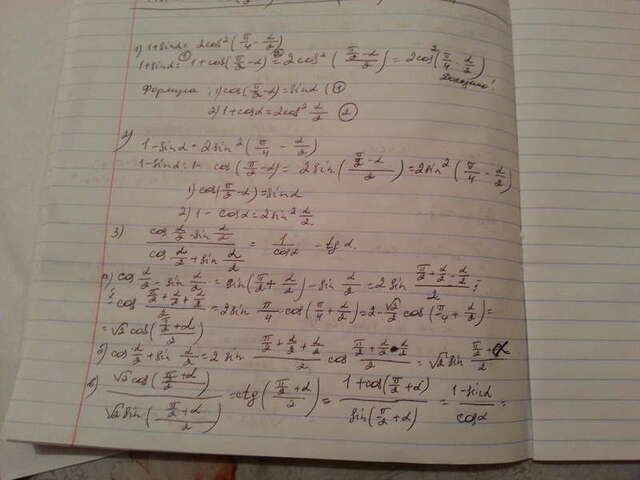 1) 1+sinα = 2cos²(π/4 - α/2)
1+sinα = ① 1+cos(π/2 - α) = ② 2cos²((π/2 - α)/2) = 2cos²(π/4 - α/2)
Доказано!
Формула: 1) cos(π/2 - α) = sinα ①
2) 1+cosα = 2cos² α/2 ②
2) 1-sinα = 2sin²(π/4 - α/2)
1-sinα = 1- cos(π/2 - α) = 2sin((π/2 - α)/2) = 2sin²(π/4 - α/2)
1) cos(π/2 - α) = sinα
2) 1 - cosα = 2sin² α/2
3) (cos α/2 - sin α/2)/(cos α/2 + sin α/2) = 1/cosα - tgα.
а) cos α/2 - sin α/2 = sin(π/2 + α/2) - sin α/2 = 2sin (π/2 + α/2 - α/2)/2 ·
· cos (π/2 + α/2 + α/2)/2 = 2sin π/4 · cos(π/4 + α/2) = 2·√2/2 cos(π/4 + α/2) =
= √2 cos((π/2 + α)/2)
б) cos α/2 + sin α/2 = 2 sin (π/2 + α/2 + α/2)/2 cos (π/2 + α/2 - α/2)/2 = √2 sin (π/2 + α)/2
в) (√2 cos((π/2 + α)/2))/(√2 sin((π/2 + α)/2)) = ctg((π/2 + α)/2) = (1+cos(π/2 + α))/(sin(π/2 + α)) = (1-sinα)/cosα =